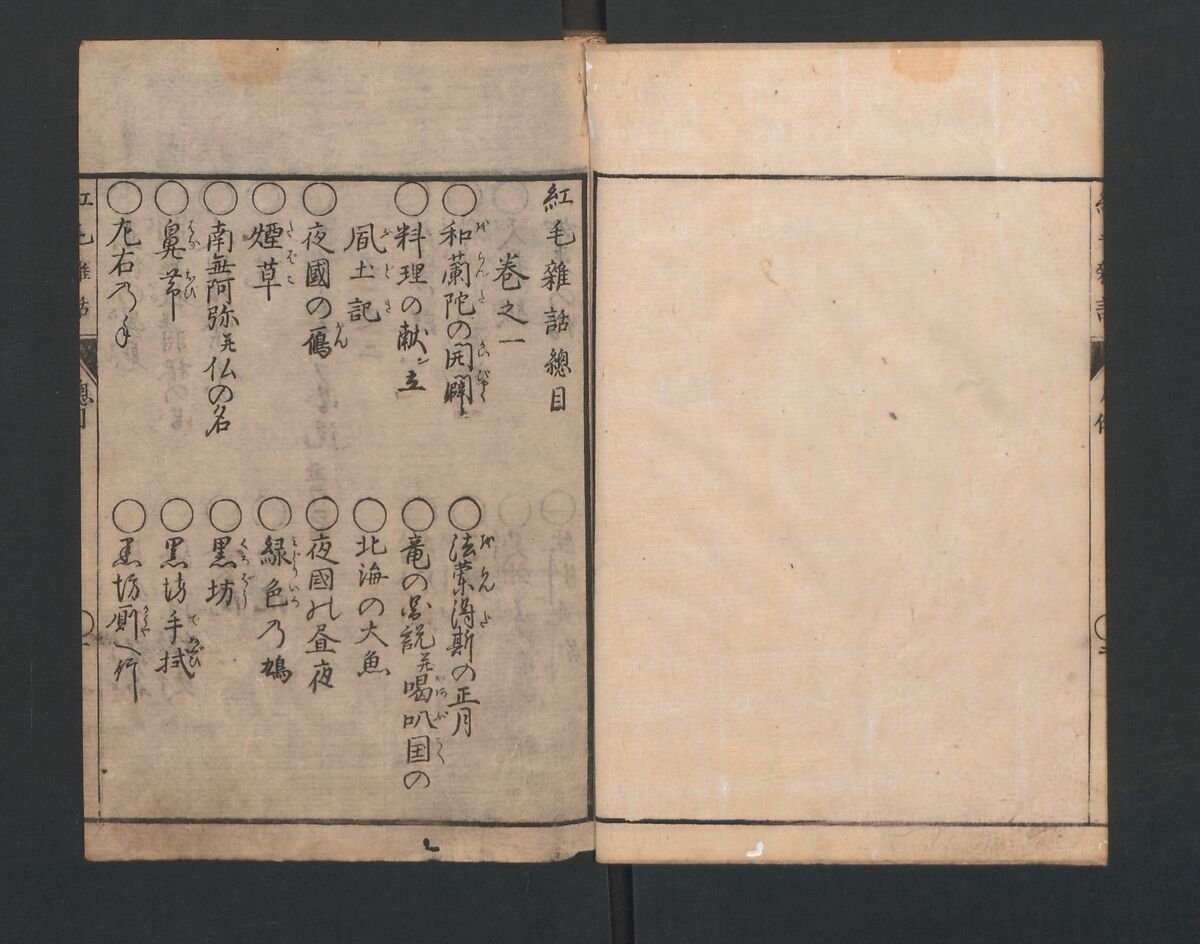 紅毛雜話總目
巻之一
○和蘭陀の開闢 ○法栄得斯の正月
○料理の献ン立 ○竜の図説并喝叭国の
風土記 ○北海の大魚
○夜國の鴈 ○夜國の昼夜
○煙草 ○緑色の鳩
○南無阿弥并仏の名 ○黒坊
○鼻帯 ○黒坊手拭
○左右の手 ○黒坊厠へ行
紅毛雜話 總目 ○一